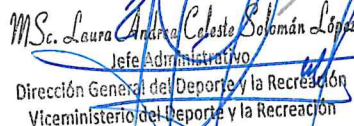 MSc. Laura Andrea Celeste Solomán López
Jefe Administrativo
Dirección General del Deporte y la Recreación
Viceministerio del Deporte y la Recreación